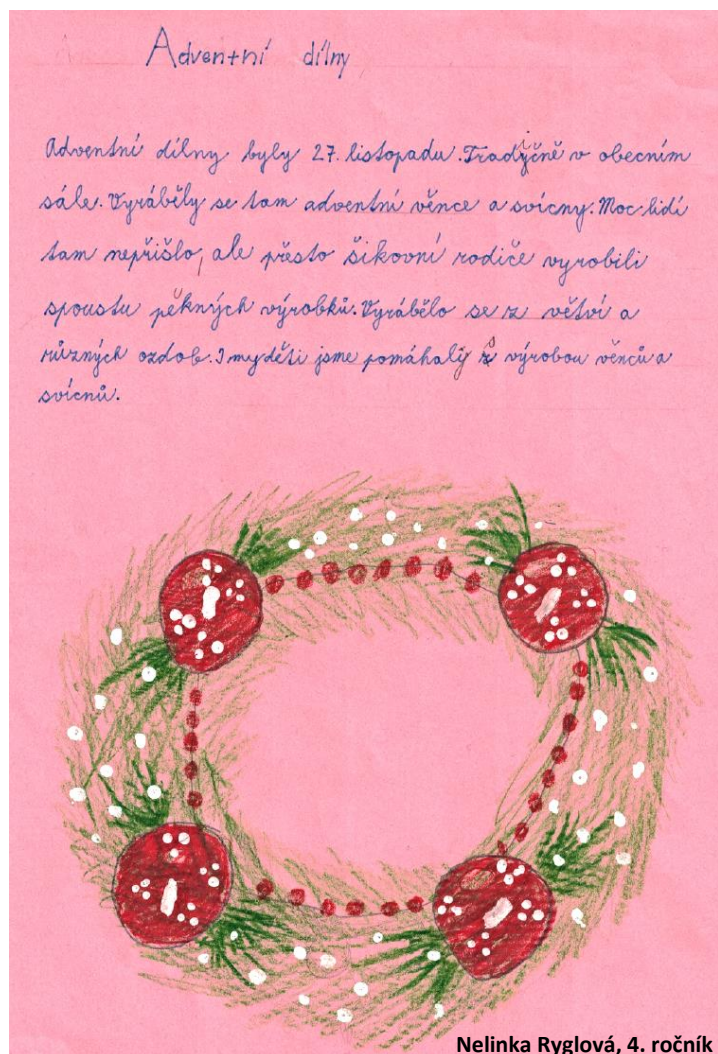 Adventní dílny
Adventní dílny byly 27. listopadu. Tradičně v obecním
sále. Vyráběly se tam adventní věnce a svícny. Moc lidí
tam nepřišlo, ale přesto šikovní rodiče vyrobili
spoustu pěkných výrobků. Vyrábělo se z větví a
různých ozdob. I my děti jsme pomáhaly s výrobou věnců a
svícnů.
Nelinka Ryglová, 4. ročník